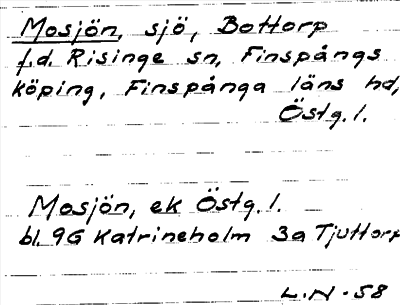 Mosjön, sjö, Bottorp
f.d. Risinge sn, Finspångs
köping, Finspånga läns hd,
Östg. l.
Mosjön, ek Östg. l.
bl. 9G Katrineholm 3a Tjuttorp
L.N - 58